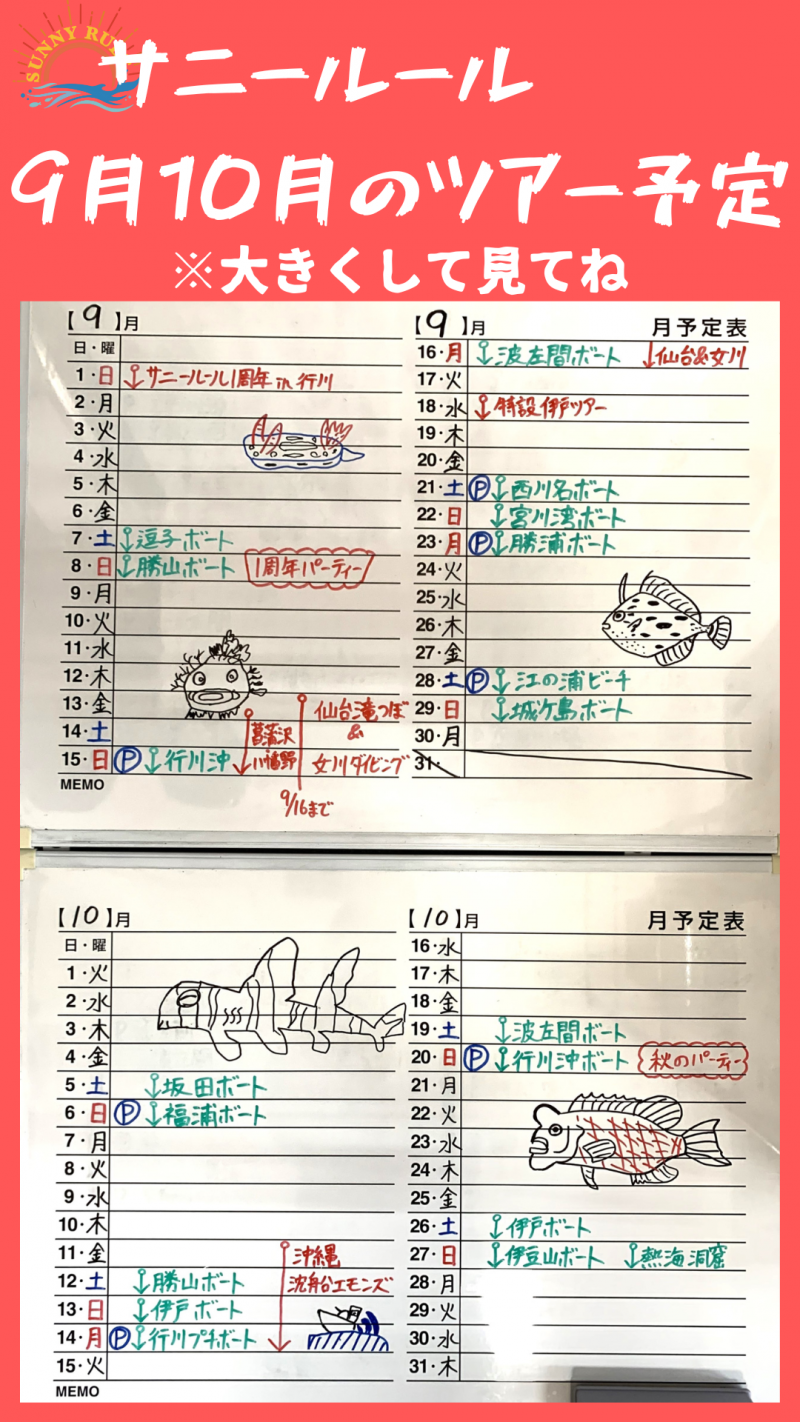 SUNNY RU
サニールール
9月10月のツアー予定
※大きくして見てね
【9】月
日・曜
1・日 サニールール1周年 in 行川
2・月
3・火
4・水
5・木
6・金
7・土 逗子ボート
8・日 勝山ボート 1周年パーティー
9・月
10・火
11・水
12・木
13・金 仙台滝つぼ
14・土 菖蒲沢 &
15・日 Ⓟ 行川沖 八幡野 女川ダイビング
MEMO 9/16まで
【9】月 月予定表
16・月 波左間ボート 仙台&女川
17・火
18・水 特設伊戸ツアー
19・木
20・金
21・土 Ⓟ 西川名ボート
22・日 宮川湾ボート
23・月 Ⓟ 勝浦ボート
24・火
25・水
26・木
27・金
28・土 Ⓟ 江の浦ビーチ
29・日 城ケ島ボート
30・月
31・
【10】月
日・曜
1・火
2・水
3・木
4・金
5・土 坂田ボート
6・日 Ⓟ 福浦ボート
7・月
8・火
9・水
10・木
11・金 沖縄
12・土 勝山ボート 沈船台エモンズ
13・日 伊戸ボート
14・月 Ⓟ 行川プチボート
15・火
MEMO
【10】月 月予定表
16・水
17・木
18・金
19・土 波左間ボート
20・日 Ⓟ 行川沖ボート 秋のパーティー
21・月
22・火
23・水
24・木
25・金
26・土 伊戸ボート
27・日 伊豆山ボート 熱海洞窟
28・月
29・火
30・水
31・木